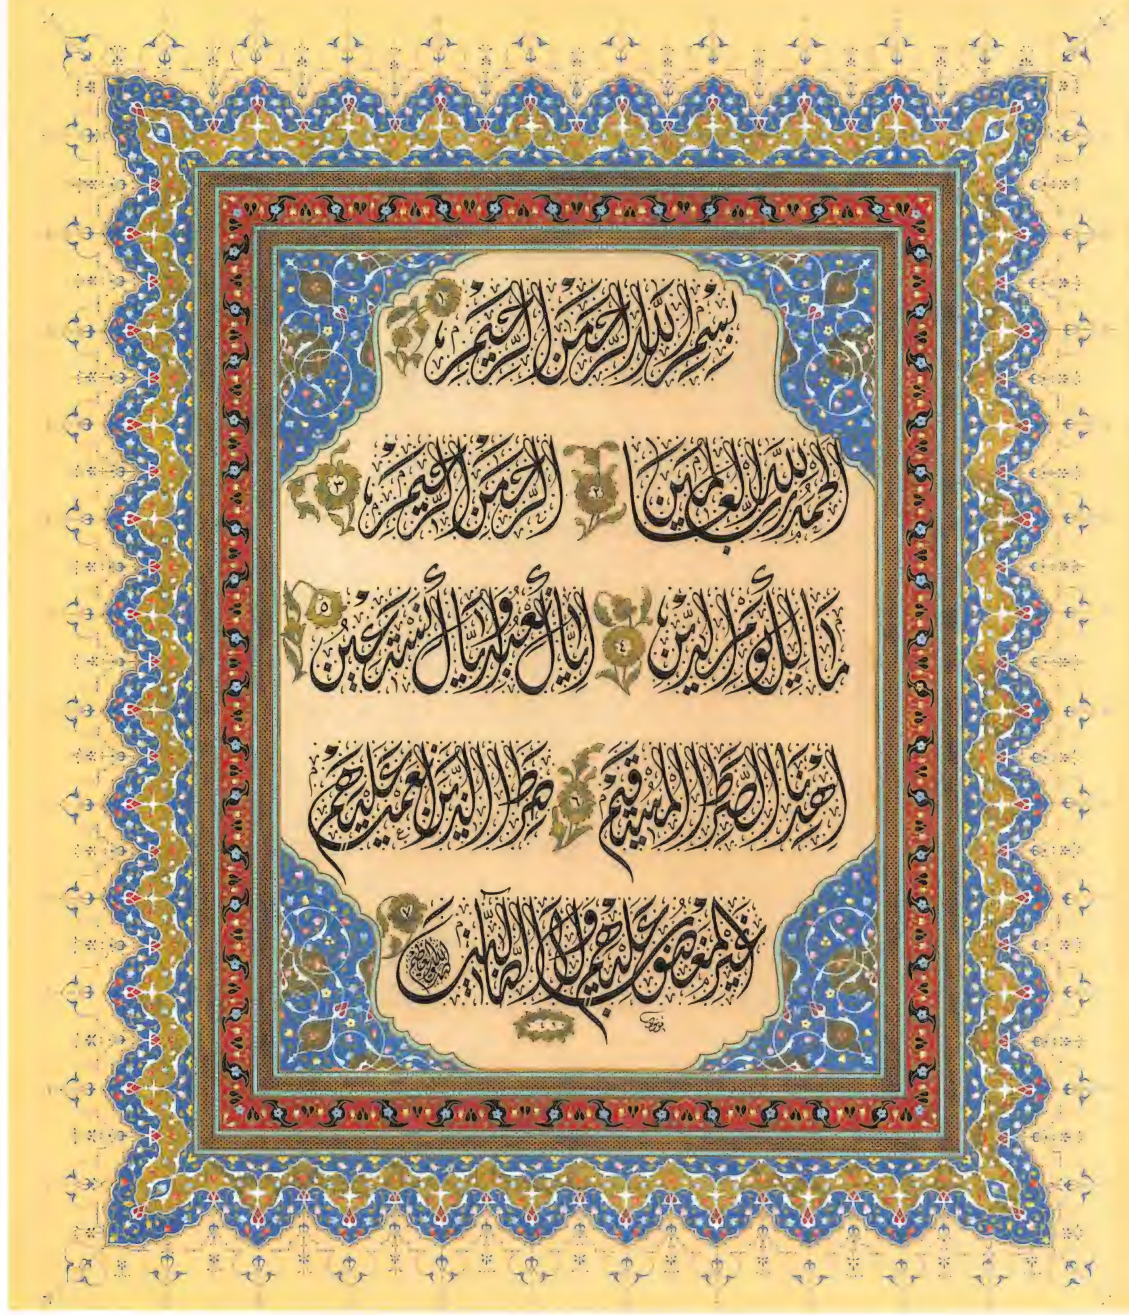 بِسْمِ اللَّهِ الرَّحْمَٰنِ الرَّحِيمِ ١
الْحَمْدُ لِلَّهِ رَبِّ الْعَالَمِينَ ٢ الرَّحْمَٰنِ الرَّحِيمِ ٣
مَالِكِ يَوْمِ الدِّينِ ٤ إِيَّاكَ نَعْبُدُ وَإِيَّاكَ نَسْتَعِينُ ٥
اهْدِنَا الصِّرَاطَ الْمُسْتَقِيمَ ٦ صِرَاطَ الَّذِينَ أَنْعَمْتَ عَلَيْهِمْ
غَيْرِ الْمَغْضُوبِ عَلَيْهِمْ وَلَا الضَّالِّينَ ٧